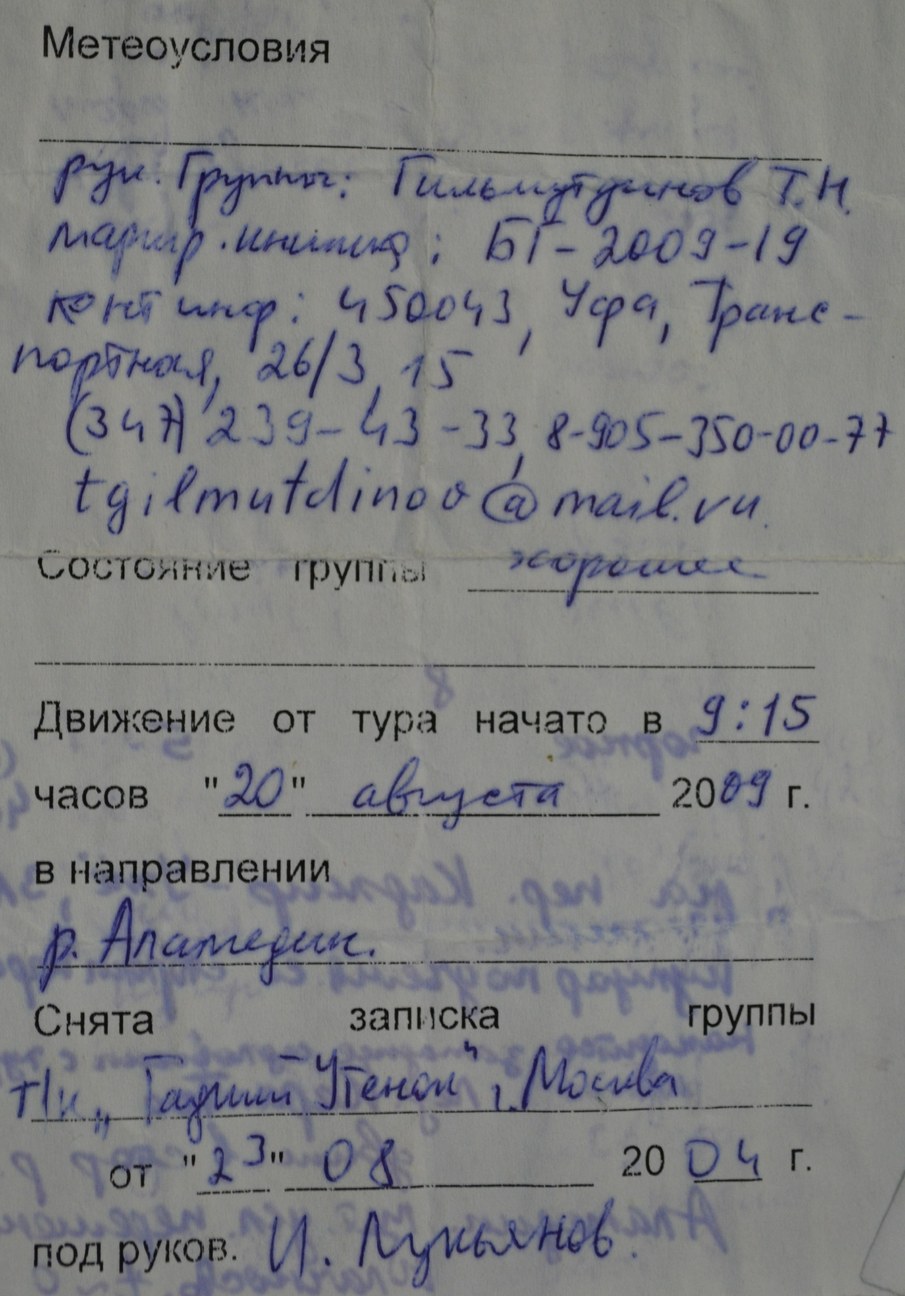 Метеоусловия
рук. Группы: Гильмутдинов Т.Н.
маршр. книжка: БГ-2009-19
конт инф: 450043, Уфа, Транс-
портная, 26/3, 15
(347) 239-43-33, 8-905-350-00-77
tgilmutdinov@mail.ru
Состояние группы хорошее
Движение от тура начато в 9:15
часов "20" августа 2009 г.
в направлении
р. Аламедин.
Снята записка группы
т/к „Гадкий Утенок", Москва
от "23" 08 2004 г.
под руков. И. Лукьянов.